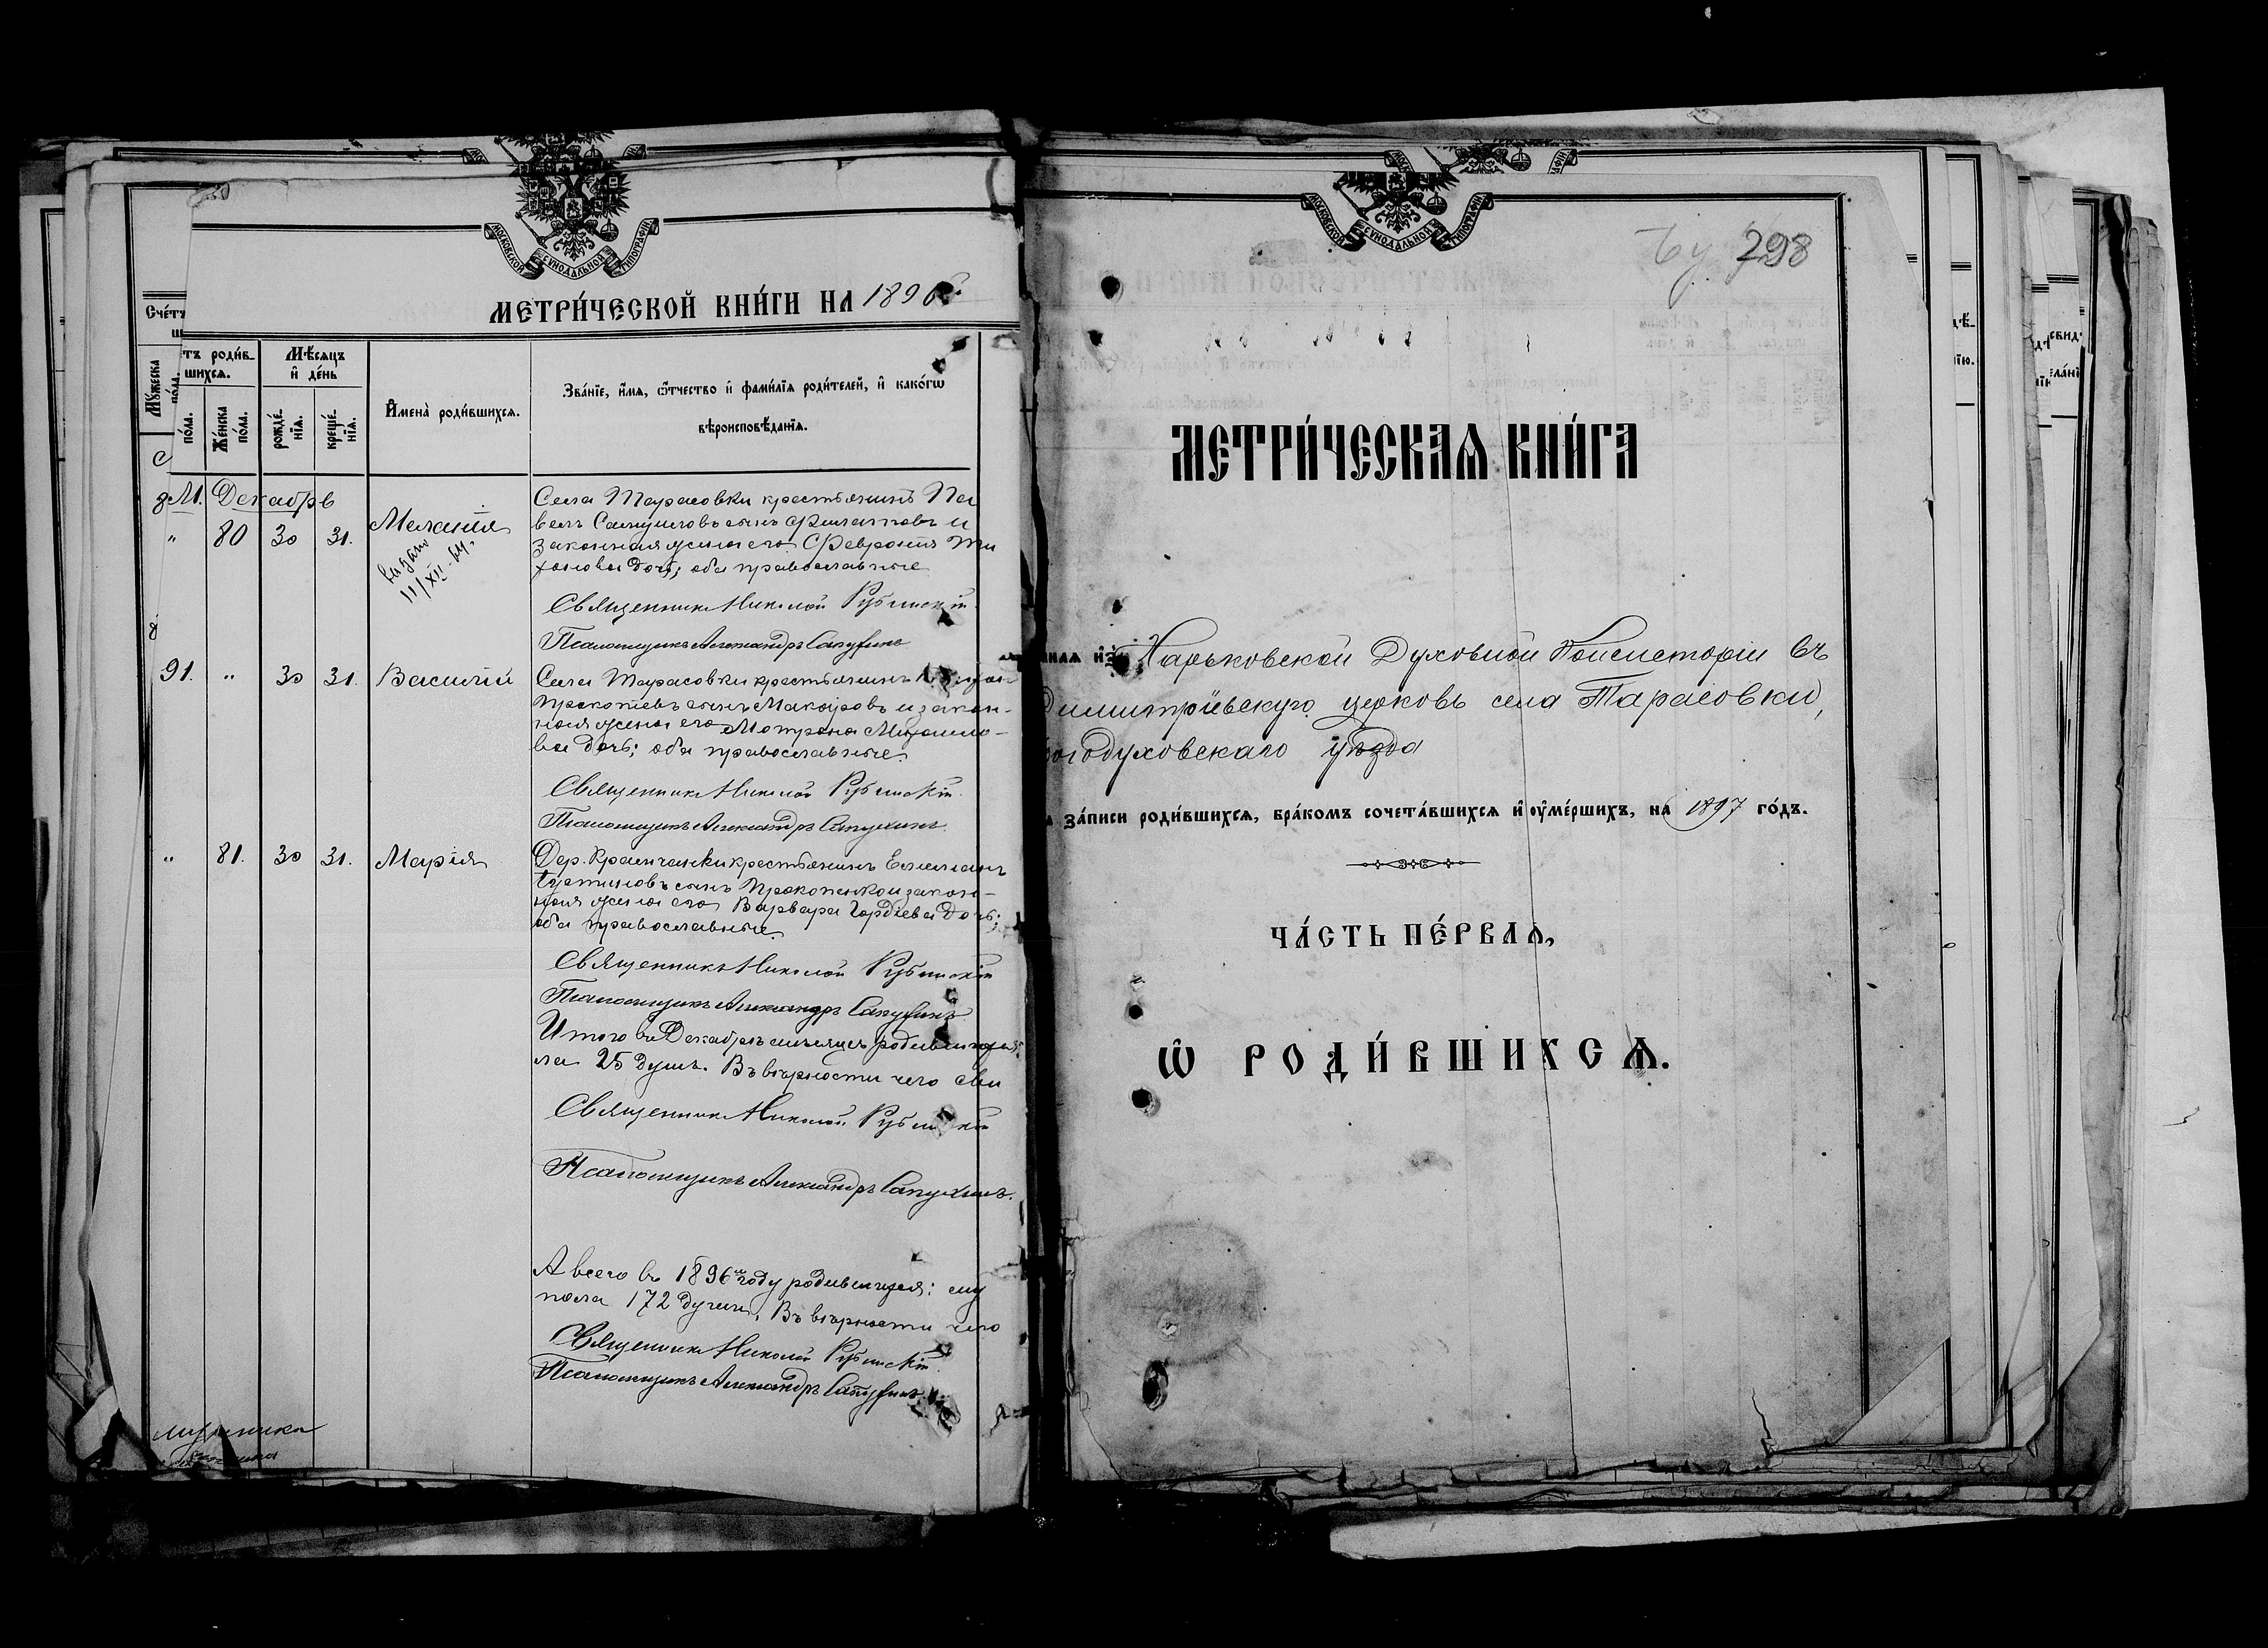 МОСКОВСКОЙ СУНОДАЛЬНОЙ ТИПОГРАФІИ
МЕТРИ́ЧЕСКОЙ КНИ́ГИ НА 1896
Сче́тъ
тъ роди́в-
шихся.
Мѣ́сяцъ
и҆ де́нь
Мꙋ́жеска
по́ла.
Же́нска
по́ла.
рожде́-
нїя.
креще́-
нїя.
И҆мена̀ роди́вшихся.
Зва́нїе, и҆́мя, ѻ҆́тчество и҆ фами́лїя роди́телей, и҆ како́гѡ
вѣроисповѣ́данїя.
М. Декабрь
" 80 30 31. Меланія
выдано
11/XII-64.
Села Тарасовки крестьянинъ Па
велъ Самуиловъ сынъ Филатовъ и
законная жена его Февронія Ти
хонова дочь; оба православные
Священникъ Николай Рубинскій
Псаломщикъ Александръ Сапухинъ
91. " 30 31. Василій
Села Тарасовки крестьянинъ
Прокопіевъ сынъ Макаровъ и закон-
ная жена его Мотрона Михаило-
ва дочь; оба православные.
Священникъ Николай Рубинскій
Псаломщикъ Александръ Сапухинъ
" 81. 30 31. Марія
Дер. крестьянинъ Емилианъ
сынъ Прокопенко и закон-
ная жена его Варвара Гордіева дочь;
оба православные.
Священникъ Николай Рубинскій
Псаломщикъ Александръ Сапухинъ
Итого въ Декабрѣ мѣсяцѣ родившихся
ла 25 душъ. Въ вѣрности чего сви
Священникъ Николай Рубинскій
Псаломщикъ Александръ Сапухинъ.
А всего въ 1896 году родившихся: му
пола 172 души. Въ вѣрности чего
Священникъ Николай Рубинскій
Псаломщикъ Александръ Сапухинъ
МОСКОВСКОЙ СУНОДАЛЬНОЙ ТИПОГРАФІИ
298
МЕТРИ́ЧЕСКАЯ КНИ́ГА
нная и҆зъ Харьковской Духовной Консисторіи въ
Димитріевскую церковь села Тарасовки,
Богодуховскаго уѣзда
за́писи роди́вшихся, бра́комъ сочета́вшихся и҆ ᲂу҆ме́ршихъ, на 1897 го́дъ.
ЧА́СТЬ ПЕ́РВАЯ,
Ѡ҆ РОДИ́ВШИХСЯ.